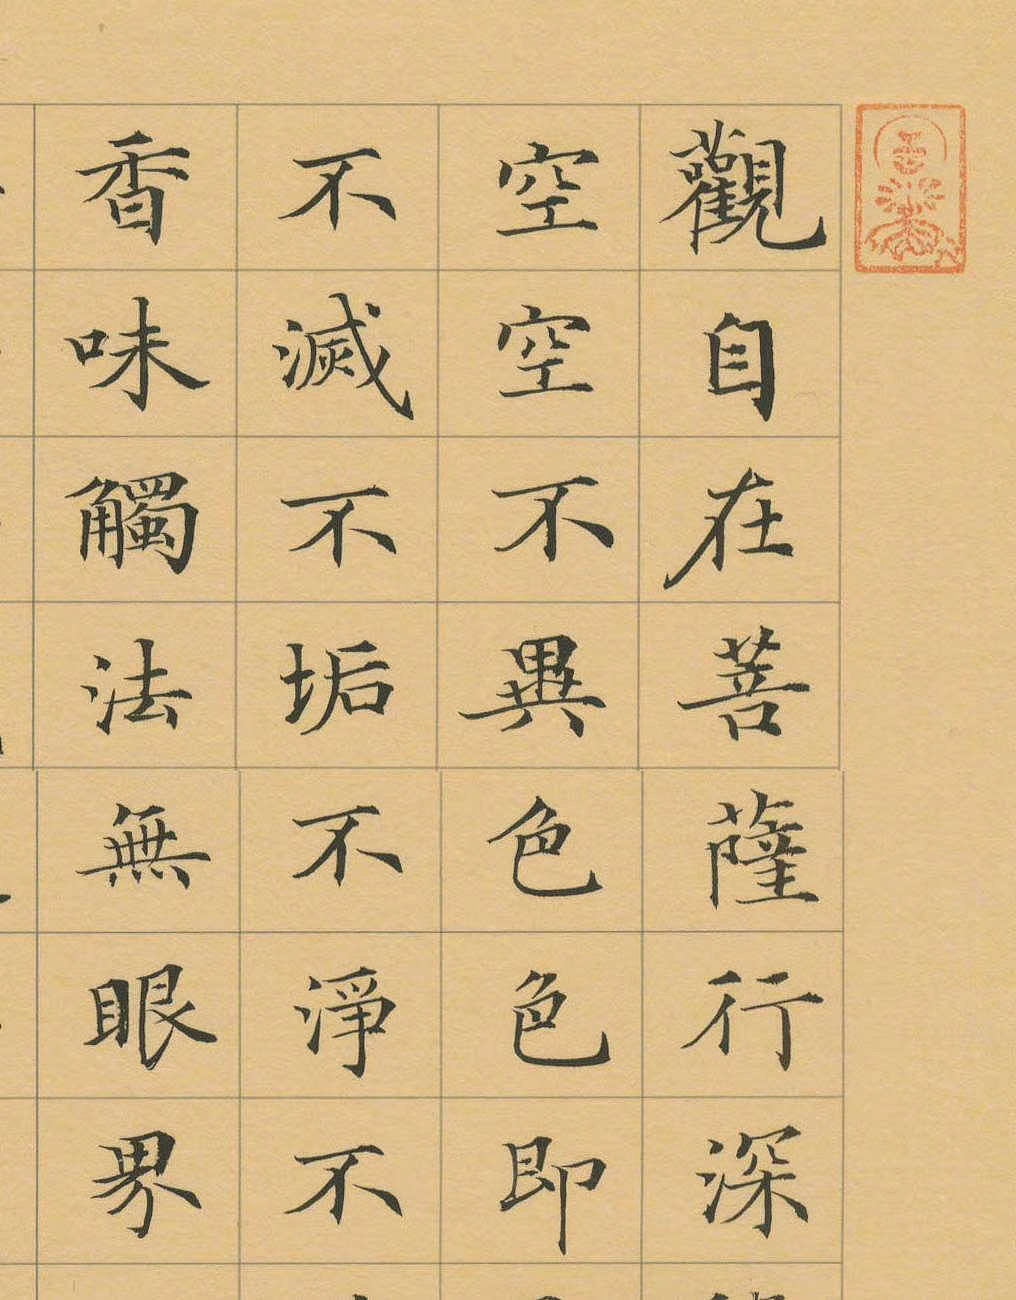 觀自在菩薩行深
空空不異色色即
不滅不垢不淨不
香味觸法無眼界